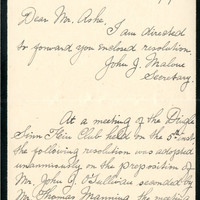 Dear Mr. Ashe,
I am directed
to forward you enclosed resolution.
John J. Malone
Secretary.
At a meeting of the
Sinn Fein Club held on the 5th inst
the following resolution was adopted
unanimously on the proposition of
Mr. John J. O'Sullivan seconded by
Mr. Thomas Manning